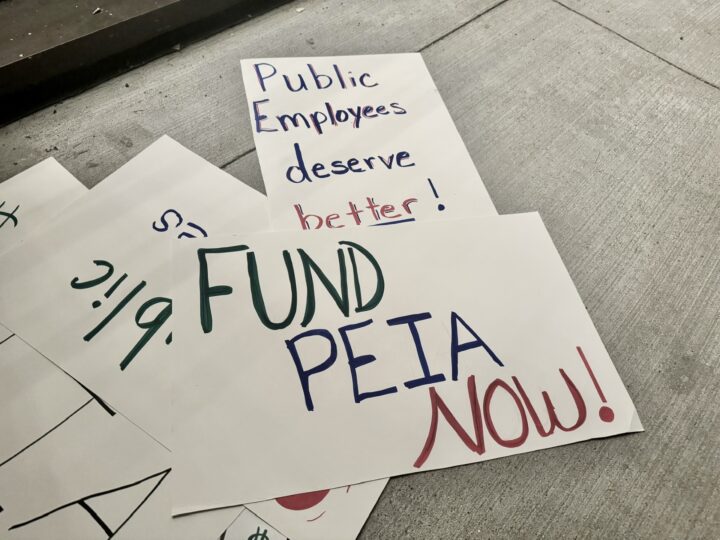 Public
Employees
deserve
better!
FUND
PEIA
NOW!
$
$